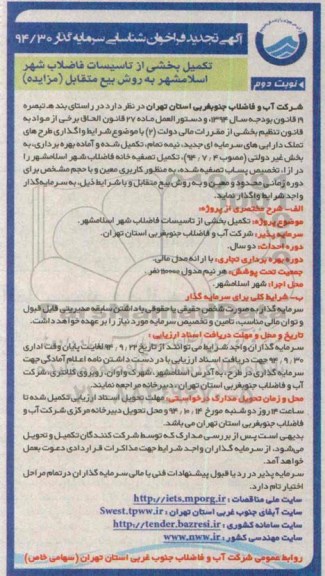 آگهی تجدید فراخوان شناسایی سرمایه گذار ۹۴/۳۰
تکمیل بخشی از تاسیسات فاضلاب شهر
اسلامشهر به روش بیع متقابل (مزایده)
نوبت دوم
شرکت آب و فاضلاب جنوبغربی استان تهران در نظر دارد در راستای بند ه تبصره
۱۹ قانون بودجه سال ۱۳۹۴، و دستورالعمل ماده ۲۷ قانون الحاق برخی از مواد به
قانون تنظیم بخشی از مقررات مالی دولت (۲) با موضوع شرایط واگذاری طرح های
تملک دارایی های سرمایه ای جدید، نیمه تمام، تکمیل شده و آماده بهره برداری، به
بخش غیر دولتی (مصوب ۹۴/۰۷/۰۴)، تکمیل تصفیه خانه فاضلاب شهر اسلامشهر را
در ازاء تخصیص پساب تصفیه شده، به منظور کاربری معین و با حجم مشخص برای
دوره زمانی محدود و معین و به روش بیع متقابل و با شرایط ذیل، به سرمایه گذار
واجد شرایط واگذار نماید.
الف- شرح مختصری از پروژه:
موضوع پروژه: تکمیل بخشی از تاسیسات فاضلاب شهر اسلامشهر.
سرمایه پذیر: شرکت آب و فاضلاب جنوبغربی استان تهران.
دوره احداث: دو سال.
دوره بهره برداری تجاری: با ارائه مدل مالی.
جمعیت تحت پوشش: هر نیم مدول نفر
محل اجرا: شهر اسلامشهر.
ب- شرایط کلی برای سرمایه گذار
سرمایه گذار به صورت شخص حقیقی یا حقوقی با داشتن سابقه مدیریتی قابل قبول
و توان مالی مناسب، تامین و تخصیص سرمایه مورد نیاز را بر عهده خواهد داشت.
تاریخ و محل و مهلت دریافت اسناد ارزیابی:
سرمایه گذاران واجد شرایط می توانند از تاریخ ۹۴/۰۹/۲۲ لغایت پایان وقت اداری
۹۴/۰۹/۳۰ جهت دریافت اسناد ارزیابی با در دست داشتن نامه اعلام آمادگی جهت
سرمایه گذاری در طرح، به آدرس اسلامشهر، شهرک واوان، روبروی کلانتری، شرکت
آب و فاضلاب جنوبغربی استان تهران، دبیرخانه مراجعه نمایند.
محل و زمان تحویل مدارک درخواستی: مهلت تحویل اسناد ارزیابی تکمیل شده تا
ساعت ۱۴ روز دوشنبه مورخ ۹۴/۱۰/۱۴ و محل تحویل دبیرخانه مرکزی شرکت آب و
فاضلاب جنوبغربی استان تهران می باشد.
بدیهی است پس از بررسی مدارک که توسط شرکت کنندگان تکمیل و تحویل
می شود، از سرمایه گذاران واجد شرایط جهت مذاکرات قراردادی دعوت بعمل
خواهد آمد.
سرمایه پذیر در رد یا قبول پیشنهادات فنی یا مالی سرمایه گذاران در تمام مراحل
اختیار تام دارد.
سایت ملی مناقصات: http://iets.mporg.ir
سایت آبفای جنوب غربی استان تهران: Swest.tpww.ir
سایت سامانه کشوری: http://tender.bazresi.ir
سایت مهندسی کشور: www.nww.ir
روابط عمومی شرکت آب و فاضلاب جنوب غربی استان تهران (سهامی خاص)